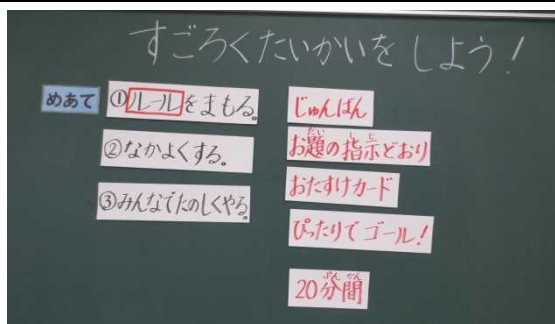 すごろくたいかいをしよう！
めあて
①ルールをまもる。
②なかよくする。
③みんなでたのしくやる。
じゅんばん
お題の指示どおり
おたすけカード
ぴったりでゴール！
20分間